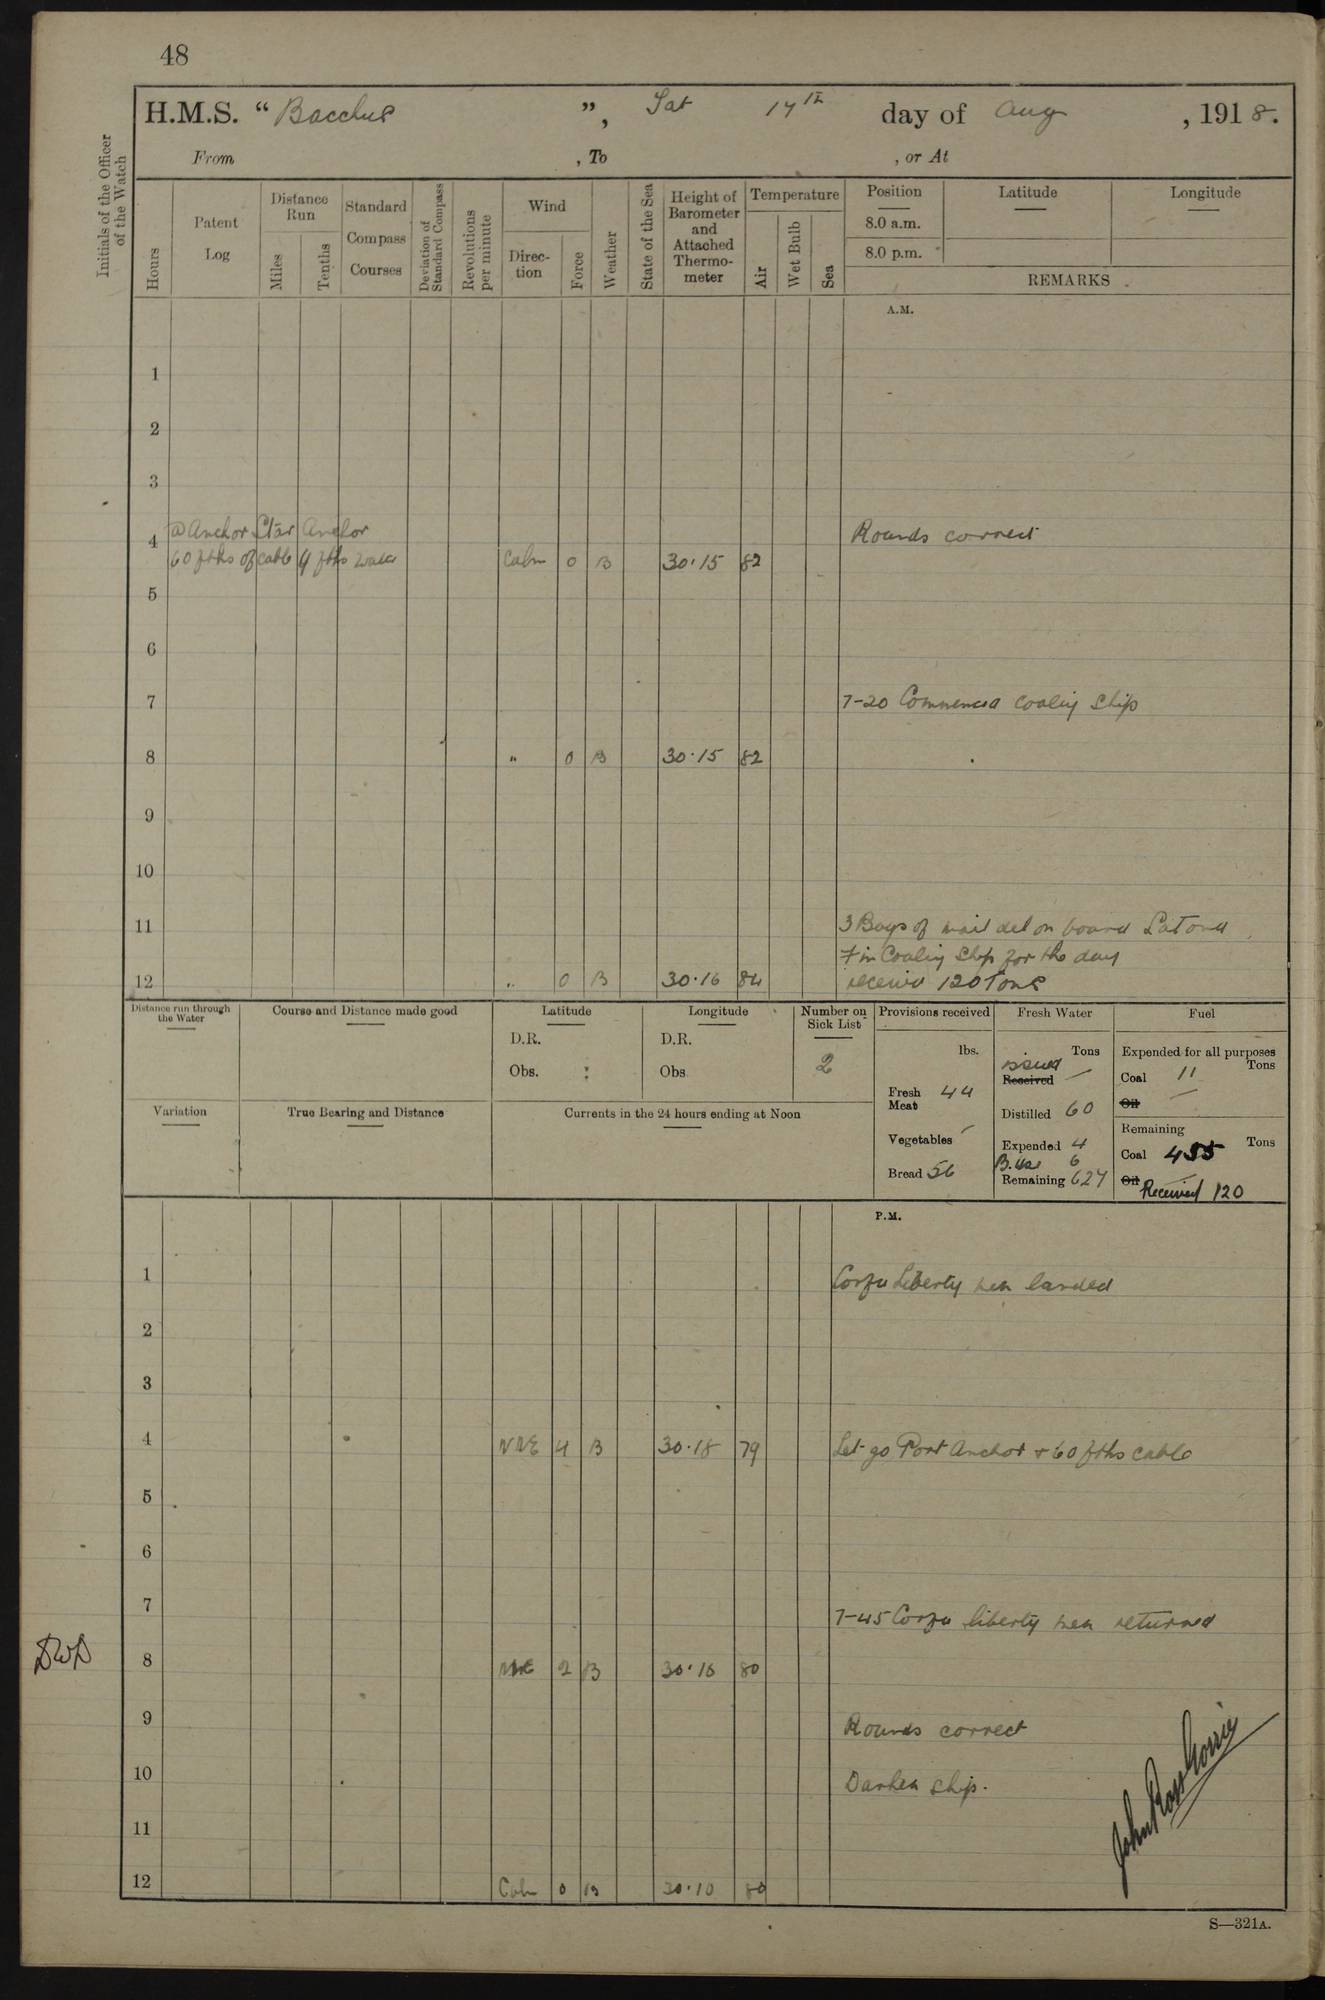 48
H.M.S. "Bacchus", Sat 17th day of Aug, 1918.
From , To , or At
Initials of the Officer of the Watch
Hours
Patent Log
Distance Run
Miles
Tenths
Standard Compass Courses
Deviation of Standard Compass
Revolutions per minute
Wind
Direction
Force
Weather
State of the Sea
Height of Barometer and Attached Thermometer
Temperature
Air
Wet Bulb
Sea
Position
8.0 a.m.
8.0 p.m.
Latitude
Longitude
REMARKS
A.M.
1
2
3
@ Anchor Star Anchor
4 Rounds correct
60 fths of cable 4 fths water Calm 0 B 30.15 82
5
6
7 7-20 Commenced coaling ship
8 " 0 B 30.15 82
9
10
11 3 Bags of mail del on board Latona
Fin Coaling Ship for the day
12 " 0 B 30.16 84 received 120 Tons
Distance run through the Water
Course and Distance made good
Latitude
D.R.
Obs. :
Longitude
D.R.
Obs
Number on Sick List
2
Provisions received
lbs.
Fresh Meat 44
Vegetables —
Bread 56
Fresh Water
Tons
issued
Received —
Distilled 60
Expended 4
B. Use 6
Remaining 627
Fuel
Expended for all purposes
Tons
Coal 11
Oil —
Remaining
Tons
Coal 455
Oil —
Received 120
Variation
True Bearing and Distance
Currents in the 24 hours ending at Noon
P.M.
1 Corfu Liberty men landed
2
3
4 NNE 4 B 30.18 79 Let go Port Anchor & 60 fths cable
5
6
7 7-45 Corfu liberty men returned
8 NNE 2 B 30.16 80
9 Rounds correct
10 Darken ship.
11
12 Calm 0 B 30.10 80
S—321A.